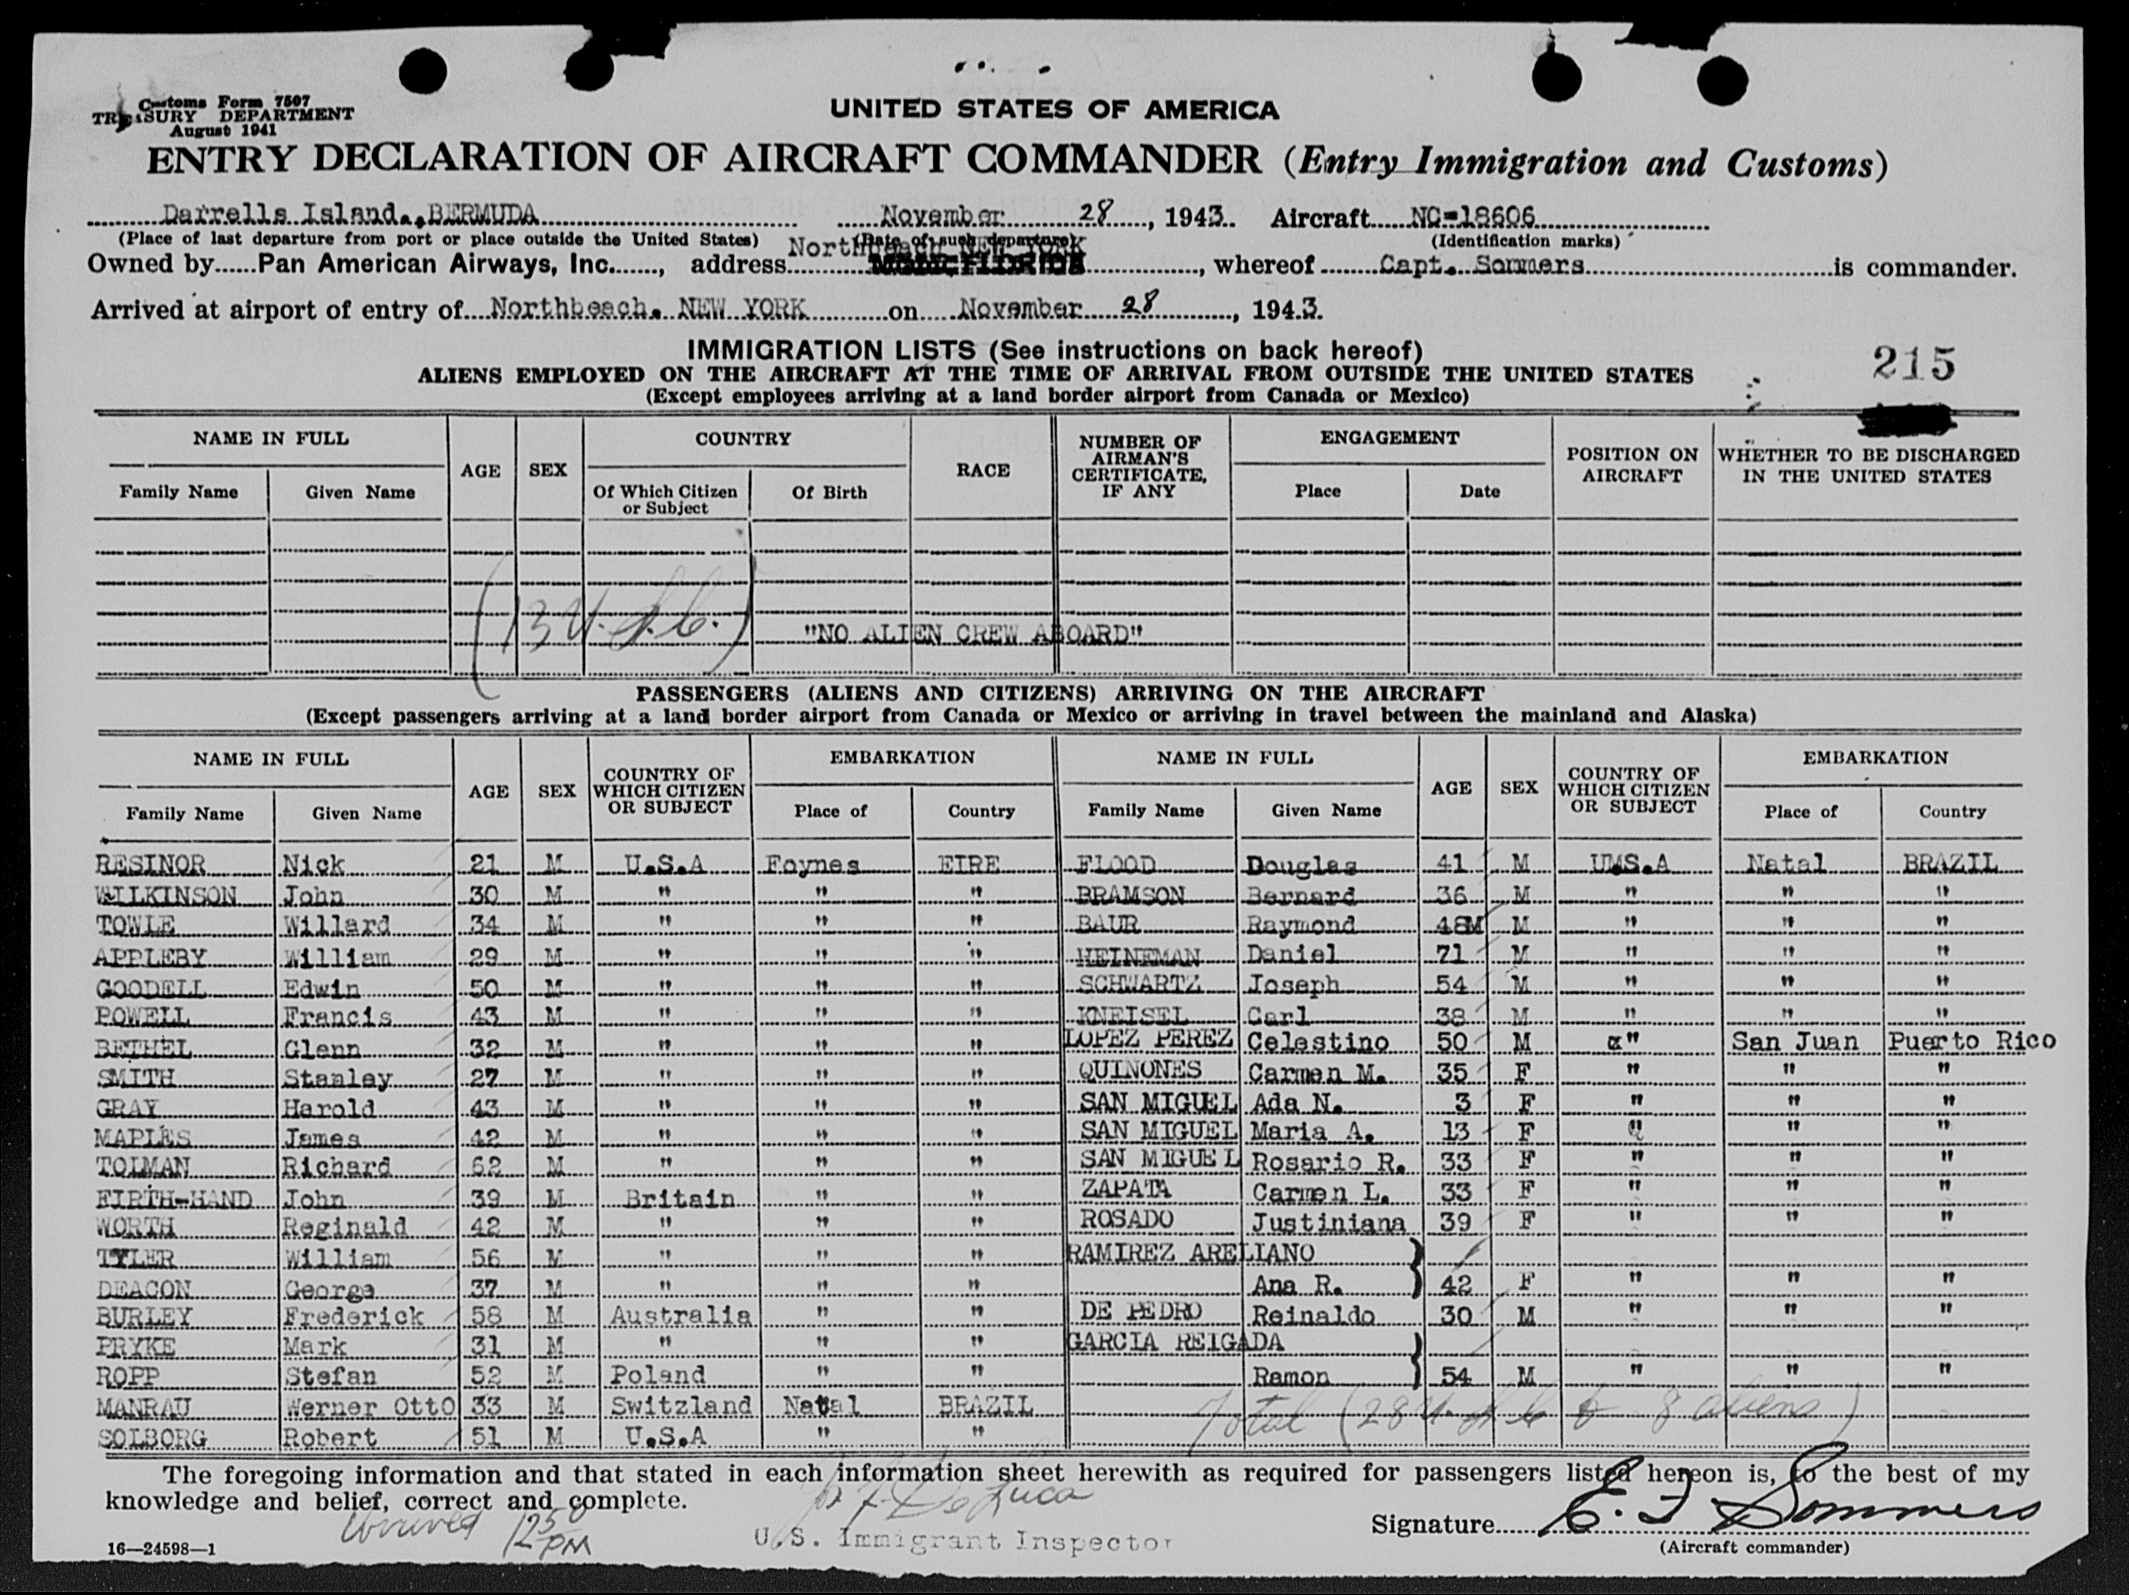 Customs Form 7507
TREASURY DEPARTMENT
August 1941
UNITED STATES OF AMERICA
ENTRY DECLARATION OF AIRCRAFT COMMANDER (Entry Immigration and Customs)
Darrells Island., BERMUDA November 28, 1943. Aircraft NC-18606
(Place of last departure from port or place outside the United States) (Date of such departure) (Identification marks)
Northbeach NEW YORK
Owned by Pan American Airways, Inc., address MIAMI, FLORIDA, whereof Capt. Sommers is commander.
Arrived at airport of entry of Northbeach, NEW YORK on November 28, 1943.
IMMIGRATION LISTS (See instructions on back hereof)
215
ALIENS EMPLOYED ON THE AIRCRAFT AT THE TIME OF ARRIVAL FROM OUTSIDE THE UNITED STATES
(Except employees arriving at a land border airport from Canada or Mexico)
NAME IN FULL AGE SEX COUNTRY RACE NUMBER OF AIRMAN'S CERTIFICATE, IF ANY ENGAGEMENT POSITION ON AIRCRAFT WHETHER TO BE DISCHARGED IN THE UNITED STATES
Family Name Given Name Of Which Citizen or Subject Of Birth Place Date
(13 U.S.C.)
"NO ALIEN CREW ABOARD"
PASSENGERS (ALIENS AND CITIZENS) ARRIVING ON THE AIRCRAFT
(Except passengers arriving at a land border airport from Canada or Mexico or arriving in travel between the mainland and Alaska)
NAME IN FULL AGE SEX COUNTRY OF WHICH CITIZEN OR SUBJECT EMBARKATION NAME IN FULL AGE SEX COUNTRY OF WHICH CITIZEN OR SUBJECT EMBARKATION
Family Name Given Name Place of Country Family Name Given Name Place of Country
RESINOR Nick 21 M U.S.A Foynes EIRE FLOOD Douglas 41 M UMS.A Natal BRAZIL
WILKINSON John 30 M " " " BRAMSON Bernard 36 M " " "
TOWLE Willard 34 M " " " BAUR Raymond 48M M " " "
APPLEBY William 29 M " " " HEINEMAN Daniel 71 M " " "
GOODELL Edwin 50 M " " " SCHWARTZ Joseph 54 M " " "
POWELL Francis 43 M " " " KNEISEL Carl 38 M " " "
BETHEL Glenn 32 M " " " LOPEZ PEREZ Celestino 50 M " San Juan Puerto Rico
SMITH Stanley 27 M " " " QUINONES Carmen M. 35 F " " "
GRAY Harold 43 M " " " SAN MIGUEL Ada N. 3 F " " "
MAPLES James 42 M " " " SAN MIGUEL Maria A. 13 F " " "
TOLMAN Richard 62 M " " " SAN MIGUEL Rosario R. 33 F " " "
FIRTH-HAND John 39 M Britain " " ZAPATA Carmen L. 33 F " " "
WORTH Reginald 42 M " " " ROSADO Justiniana 39 F " " "
TYLER William 56 M " " " RAMIREZ ARELIANO
DEACON George 37 M " " " Ana R. 42 F " " "
BURLEY Frederick 58 M Australia " " DE PEDRO Reinaldo 30 M " " "
PRYKE Mark 31 M " " " GARCIA REIGADA
ROPP Stefan 52 M Poland " " Ramon 54 M " " "
MANRAU Werner Otto 33 M Switzland Natal BRAZIL Total (28 U.S.C & 8 aliens)
SOLBORG Robert 51 M U.S.A " "
The foregoing information and that stated in each information sheet herewith as required for passengers listed hereon is, to the best of my
knowledge and belief, correct and complete.
De Luca
Arrived 12 50 PM
U.S. Immigrant Inspector
Signature E. F Sommers
(Aircraft commander)
16—24598—1